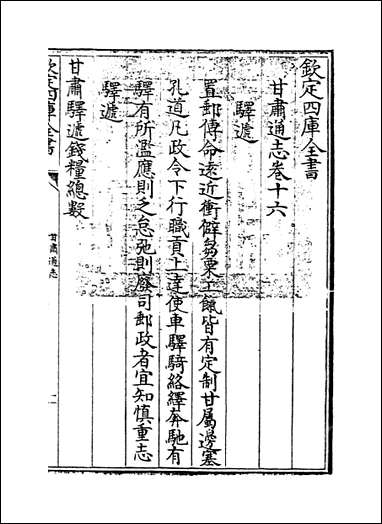 欽定四庫全書
甘肅通志卷十六
驛遞
置郵傳命遠近衝僻芻粟工餼皆有定制甘屬邊塞
孔道凡政令下行職貢上達使車驛騎絡繹奔馳有
驛有所濫應則乏怠弛則廢司郵政者宜知慎重志
驛遞
甘肅驛遞錢糧總數
欽定四庫全書
甘肅通志